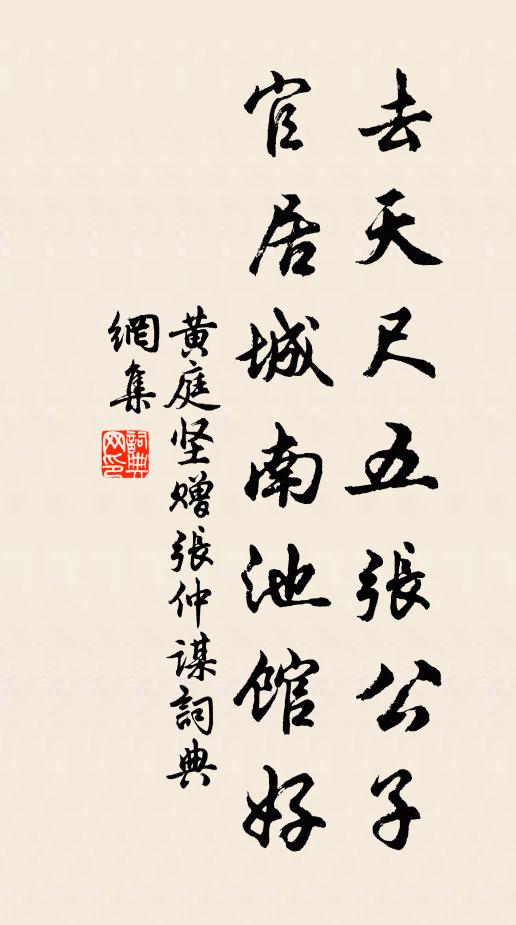 去天尺五張公子
官居城南池馆好
黄庭坚赠張仲謀詞典
網集
詞典
网印